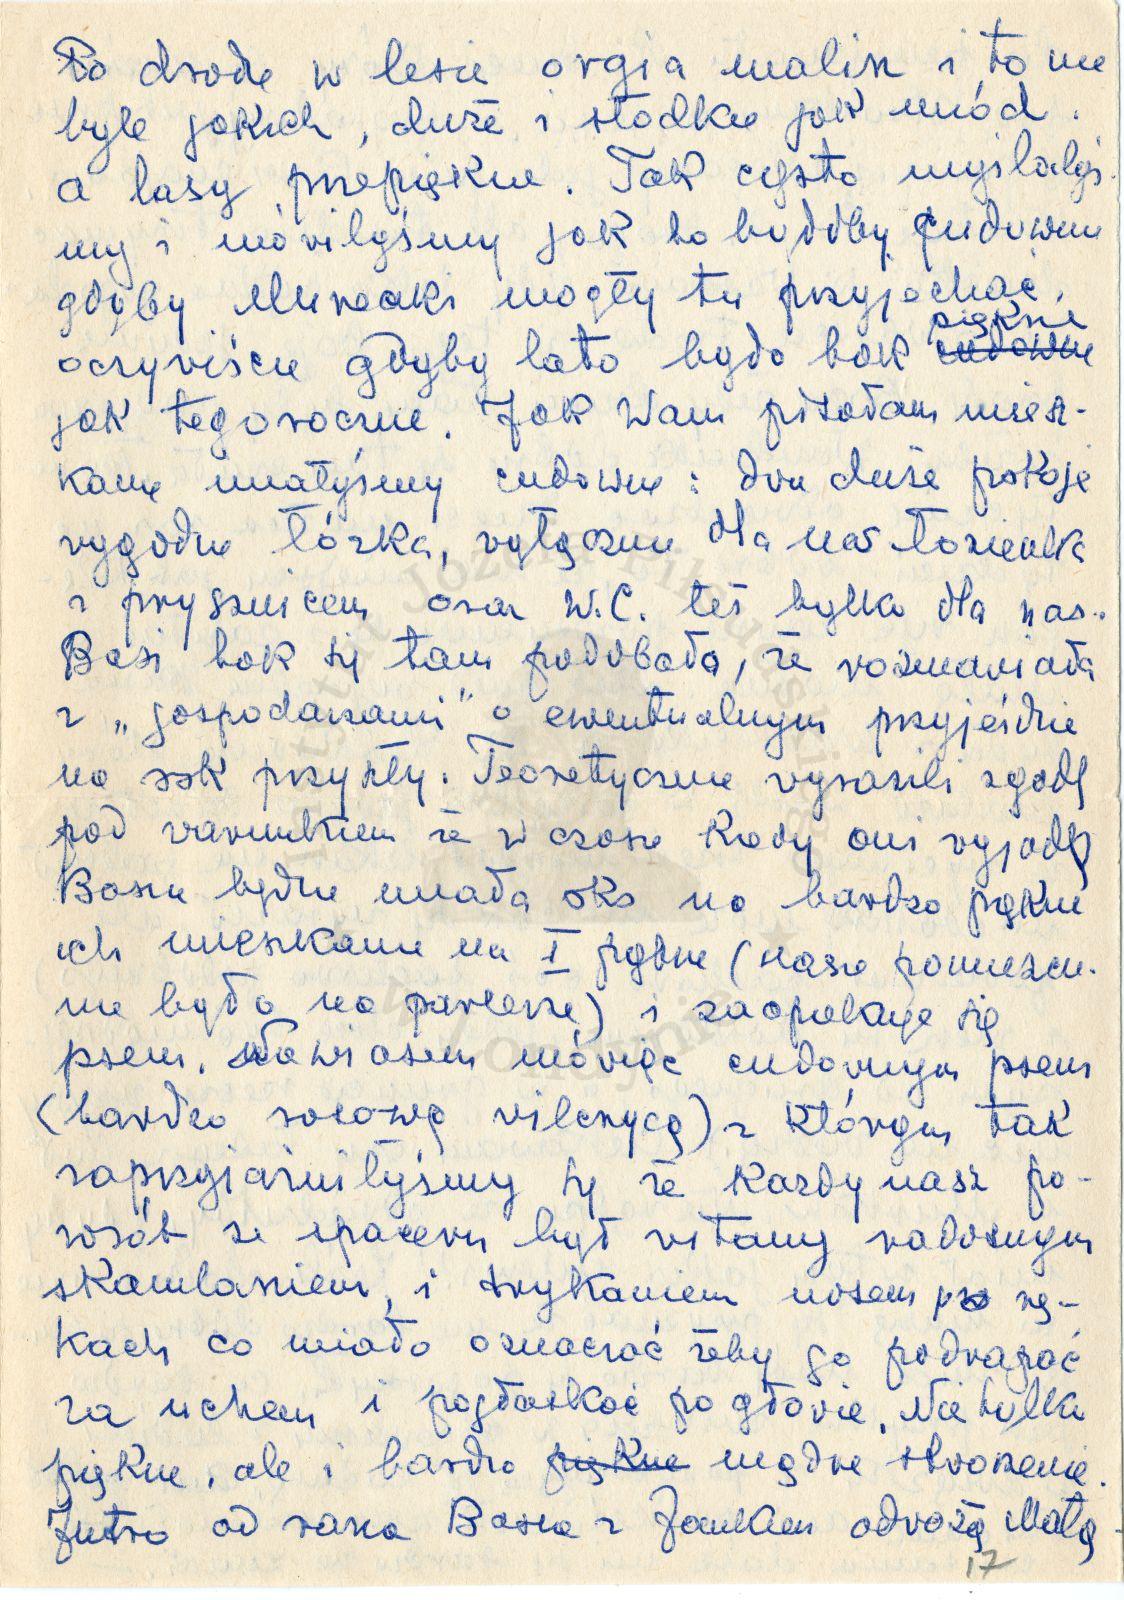 Po drodze w lesie orgia malin i to nie
byle jakich, duże i słodkie jak miód.
a lasy przepiękne. Tak często myślałyś-
my i mówiłyśmy jak to byłoby cudownie
gdyby Mureczki mogły tu przyjechać,
oczywiście gdyby lato było tak piękne
jak tegoroczne. Jak Wam pisałam miesz-
kanie miałyśmy cudowne: dwa duże pokoje
wygodne łóżka, wyłącznie dla nas łazienka
z prysznicem oraz W.C. też tylko dla nas.
Basi tak się tam podobało, że rozmawiała
z „gospodarzami" o ewentualnym przyjeździe
na rok przyszły. Teoretycznie wyrazili zgodę
pod warunkiem że w czasie kiedy oni wyjadą
Basia będzie miała oko na bardzo piękne
ich mieszkanie na I piętrze (nasze pomieszcze-
nie było na parterze) i zaopiekuje się
psem. Nawiasem mówiąc cudownym psem
(bardzo rasową wilczycą) z którym tak
zaprzyjaźniłyśmy się że każdy nasz po-
wrót ze spaceru był witany radosnym
skamlaniem, i trykaniem nosem po rę-
kach co miało oznaczać żeby go podrapać
za uchem i pogłaskać po głowie. Nie tylko
piękne, ale i bardzo piękne mądre stworzenie.
Jutro od rana Basia z Jankiem odwożą Małą
17
Instytut Józefa Piłsudskiego
w Londynie